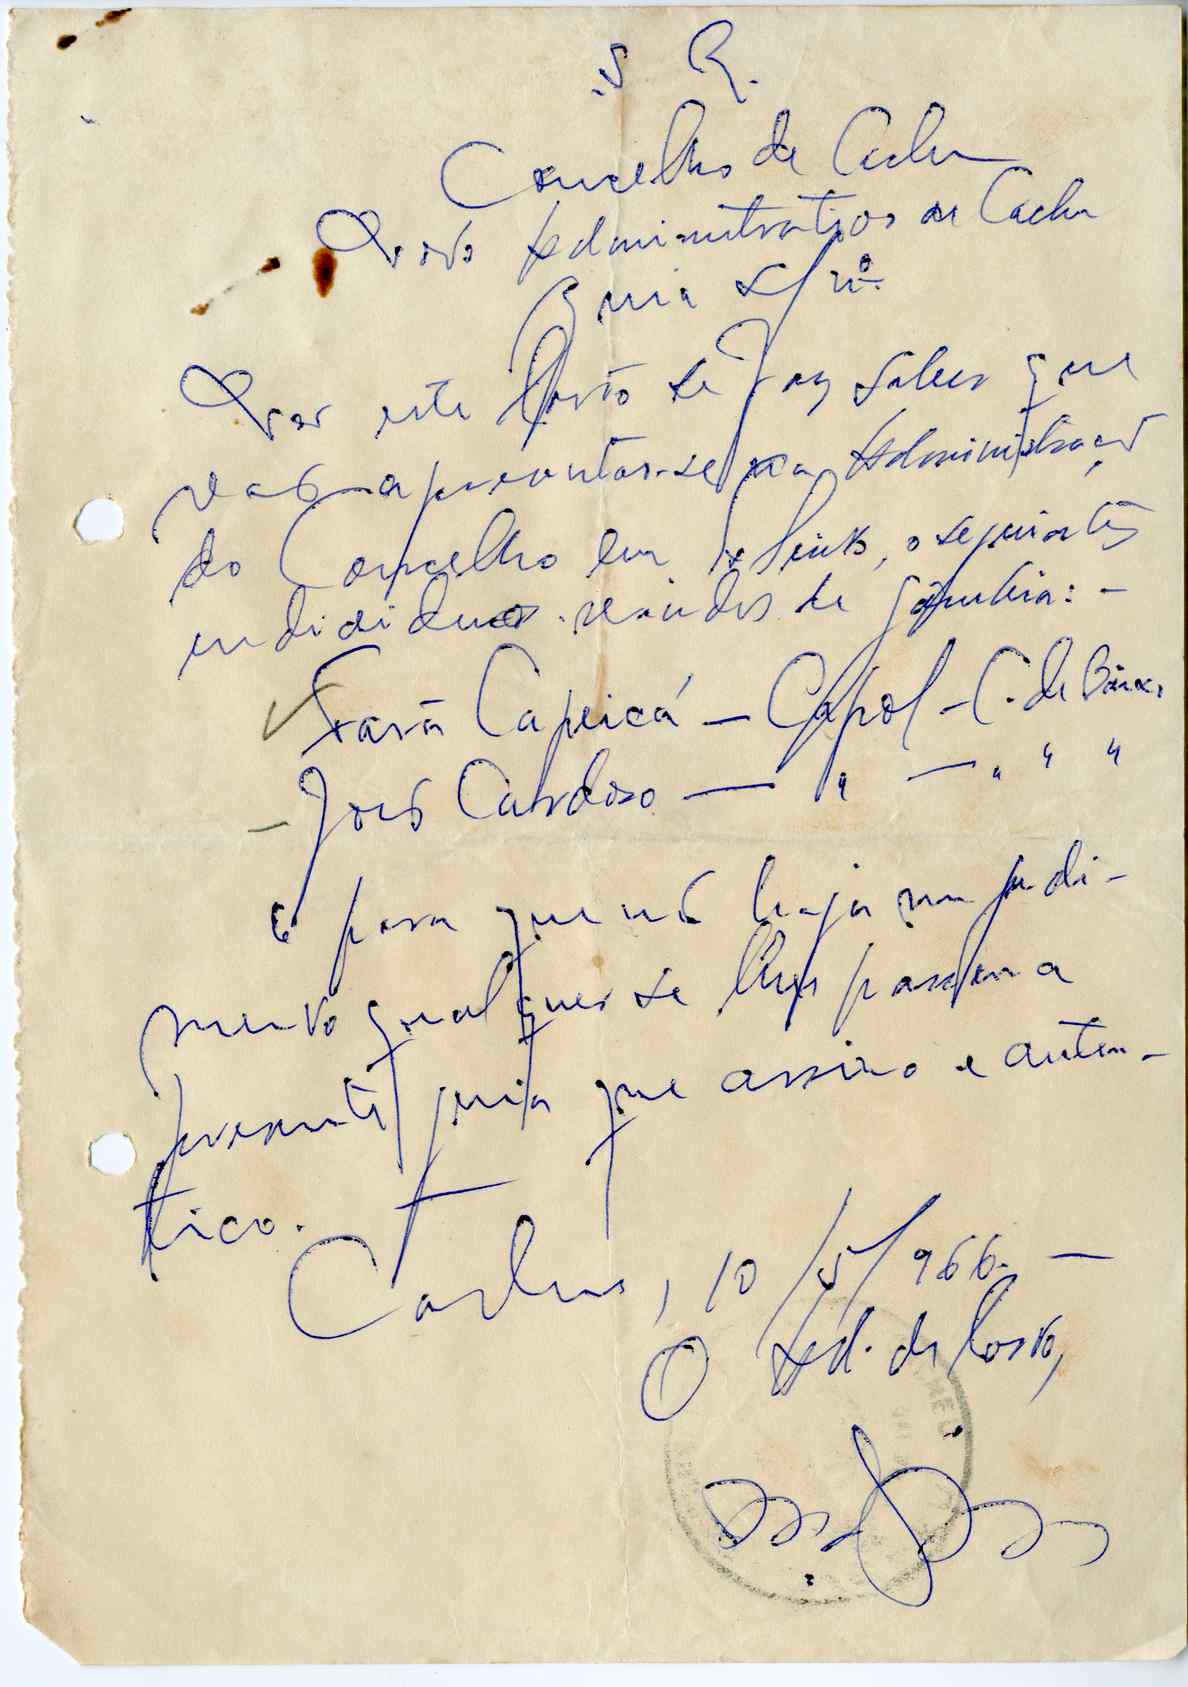 S. R.
Concelho de Cacheu
Posto Administrativo de Cacheu
Guia s/nº
Por este Posto se faz saber que
vão apresentar-se na Administração
do Concelho em, os seguintes
individuos vindos de Gâmbia: -
Capicá — Capol - C. de Baixo
José Cardoso — " — " " "
E para que não haja impedi-
mento qualquer se lhes passem a
presente guia que assino e auten-
tico.
Cacheu, 10/5/966. —
O Ad. de Posto,